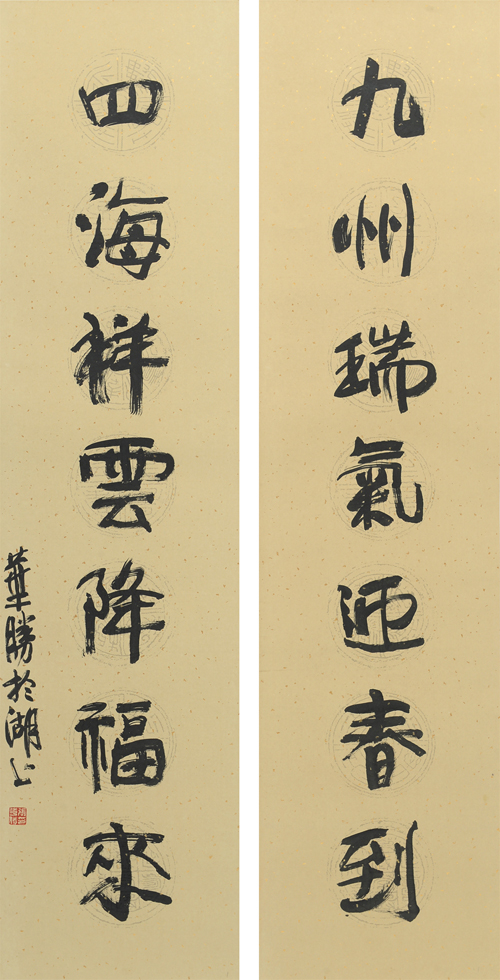 九州瑞氣迎春到
四海祥雲降福來
華勝於湖上